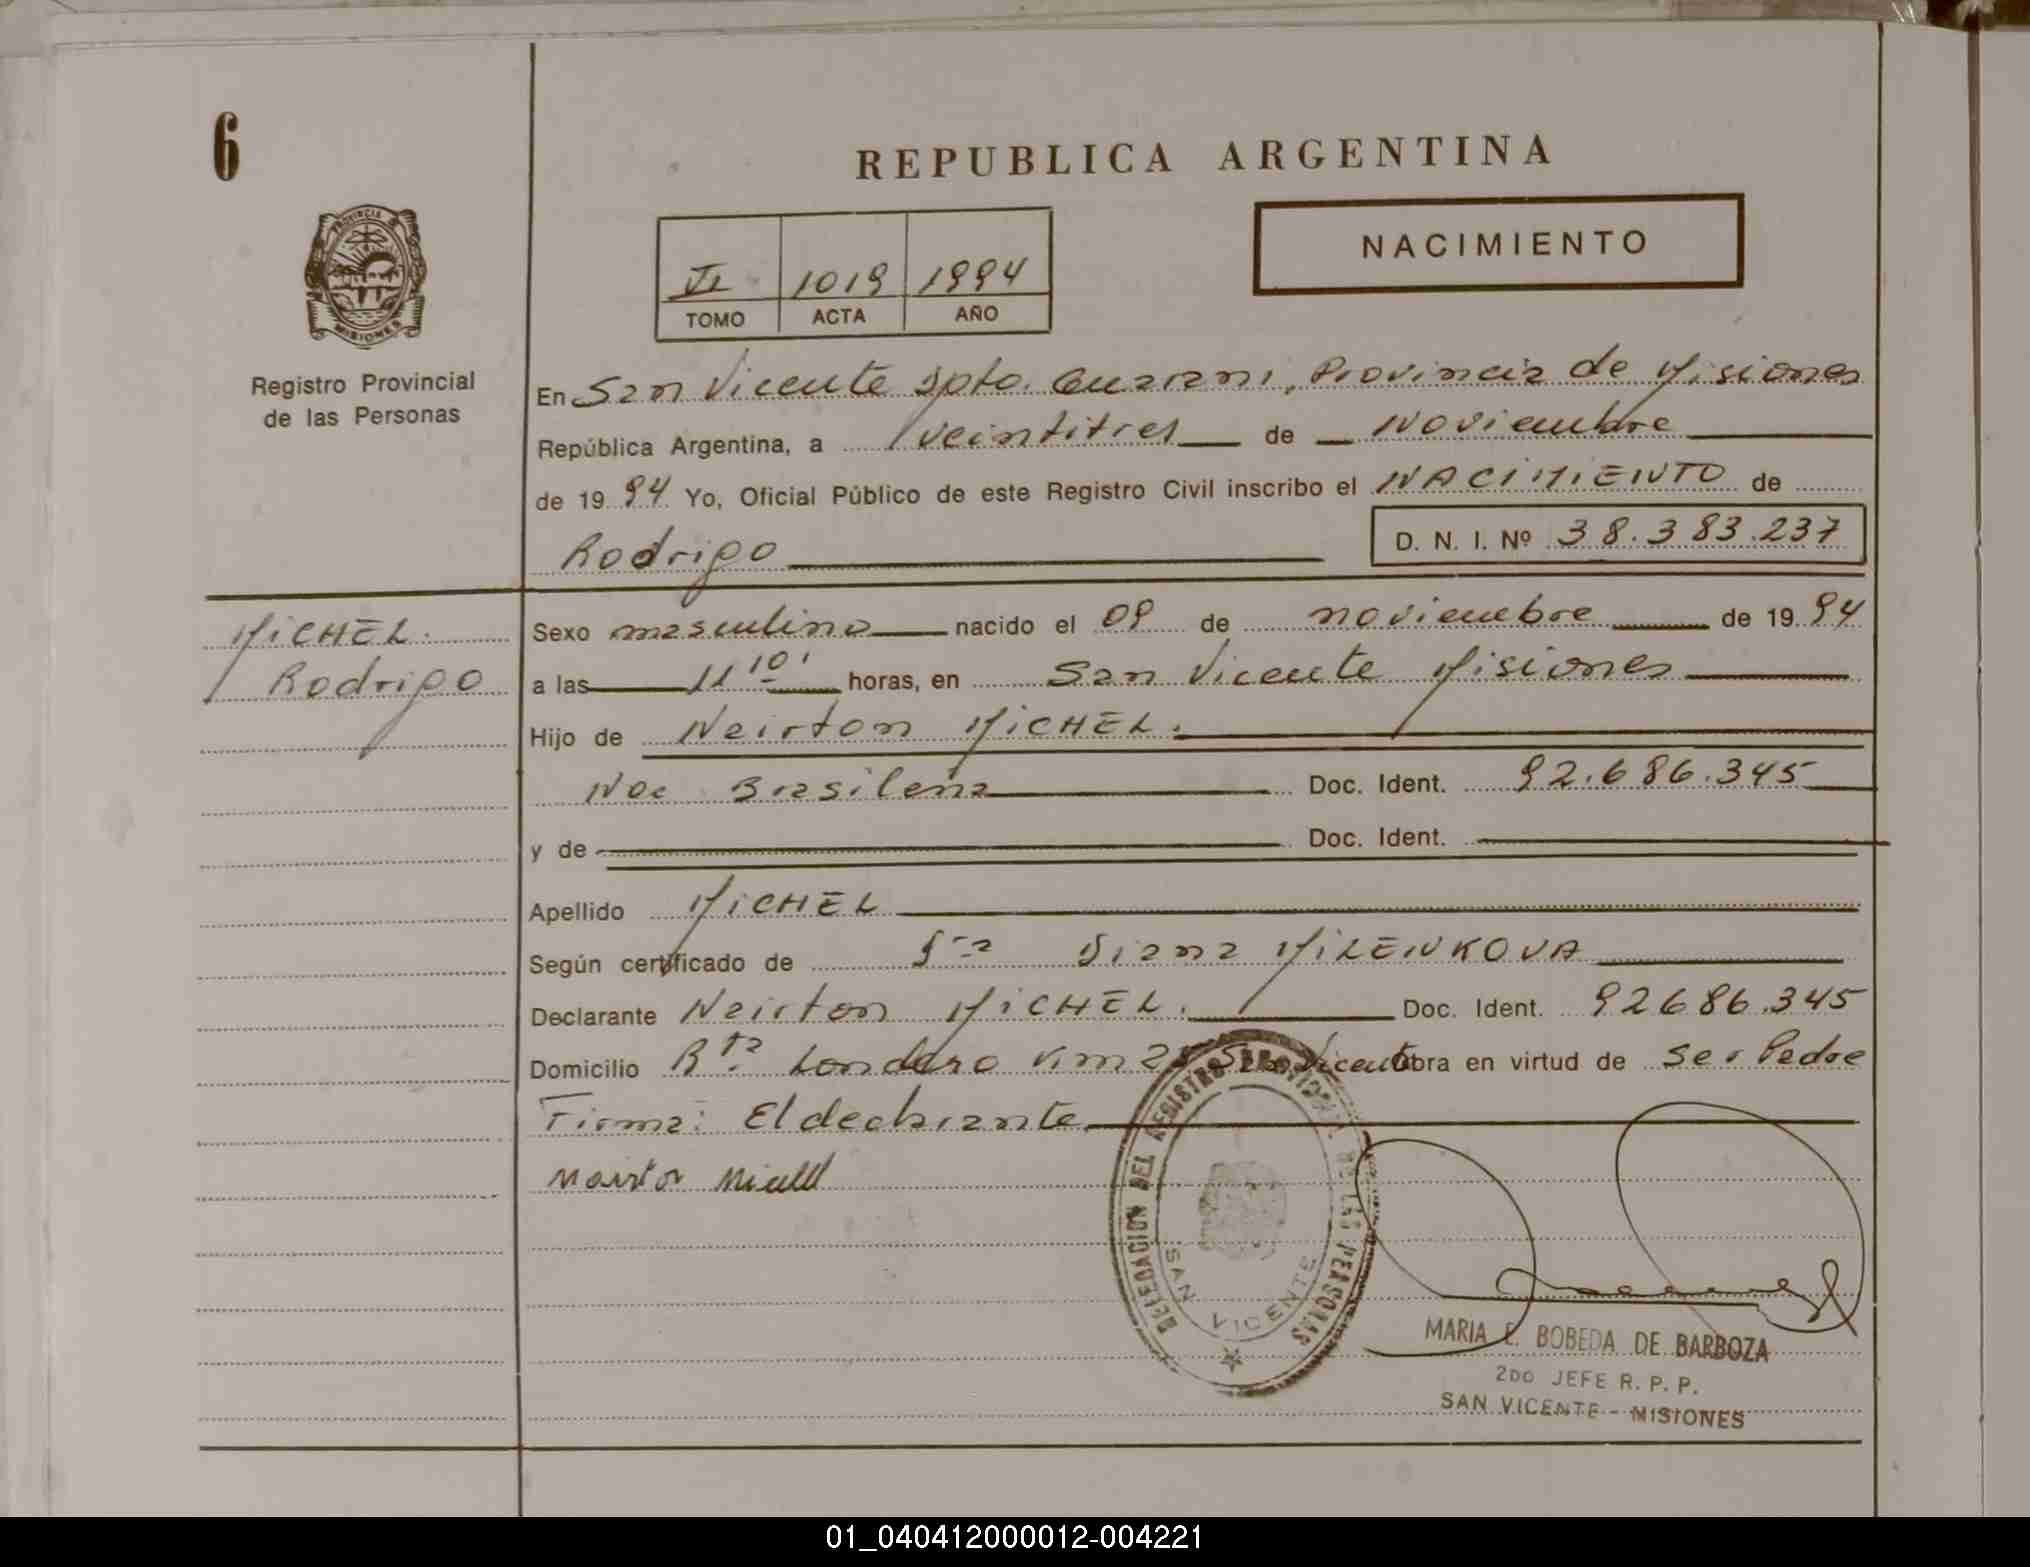 6
REPUBLICA ARGENTINA
PROVINCIA DE
MISIONES
Registro Provincial
de las Personas
NACIMIENTO
VI 1019 1994
TOMO ACTA AÑO
En San Vicente Dpto. Guarani, Provincia de Misiones
República Argentina, a veintitres de Noviembre
de 1994 Yo, Oficial Público de este Registro Civil inscribo el NACIMIENTO de
Rodrigo D. N. I. Nº 38.383.237
MICHEL.
Rodrigo
Sexo masculino nacido el 09 de noviembre de 1994
a las 11 10' horas, en San Vicente Misiones
Hijo de Neirton MICHEL.
Nac Brasileña Doc. Ident. 92.686.345
y de Doc. Ident.
Apellido MICHEL
Según certificado de Dra Diana MILENKOVA
Declarante Neirton MICHEL. Doc. Ident. 92686.345
Domicilio Rta Londero Km San Vicente obra en virtud de ser Padre
Firma: El declarante
DELEGACION DEL REGISTRO PROVINCIAL DE LAS PERSONAS
SAN VICENTE
MARIA E. BOBEDA DE BARBOZA
2DO JEFE R. P. P.
SAN VICENTE - MISIONES
01_040412000012-004221